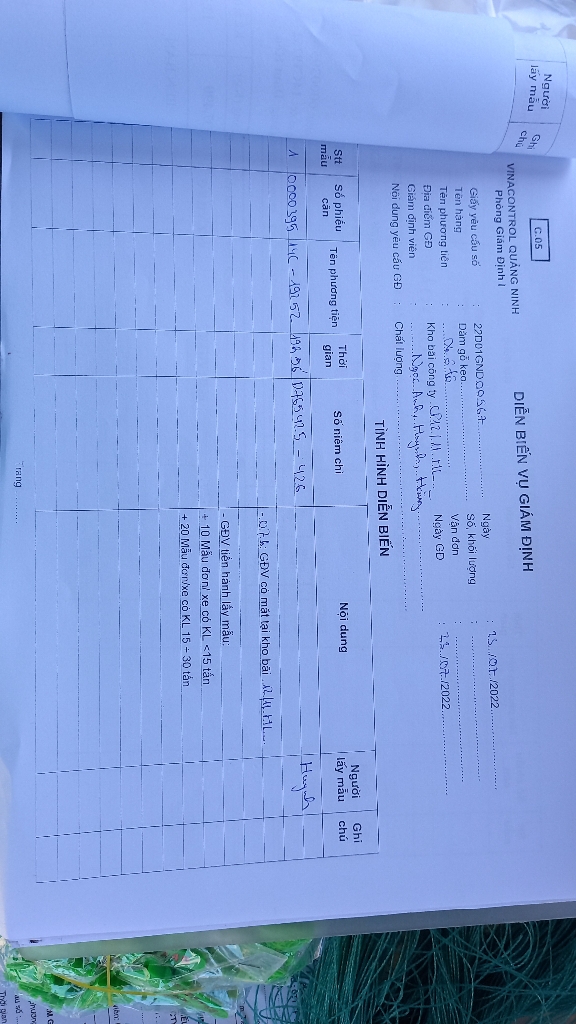 Người lấy mẫu
Ghi chú
C.05
VINACONTROL QUẢNG NINH
Phòng Giám Định I
DIỄN BIẾN VỤ GIÁM ĐỊNH
Giấy yêu cầu số : 22D01GND00567
Ngày : 23/07/2022
Tên hàng : Dăm gỗ keo
Số, khối lượng :
Tên phương tiện :
Vận đơn :
Địa điểm GĐ : Kho bãi công ty
Ngày GĐ : 23/07/2022
Giám định viên : Ngọc Anh, Huynh, Hùng
Nội dung yêu cầu GĐ : Chất lượng
TÌNH HÌNH DIỄN BIẾN
Stt mẫu
Số phiếu cân
Tên phương tiện
Thời gian
Số niêm chì
Nội dung
Người lấy mẫu
Ghi chú
1 0000395 14C - 19252 0765425 - 426 Huynh
GĐV có mặt tại kho bãi
- GĐV tiến hành lấy mẫu:
+ 10 Mẫu đơn/ xe có KL <15 tấn
+ 20 Mẫu đơn/xe có KL 15 ÷ 30 tấn
Trang